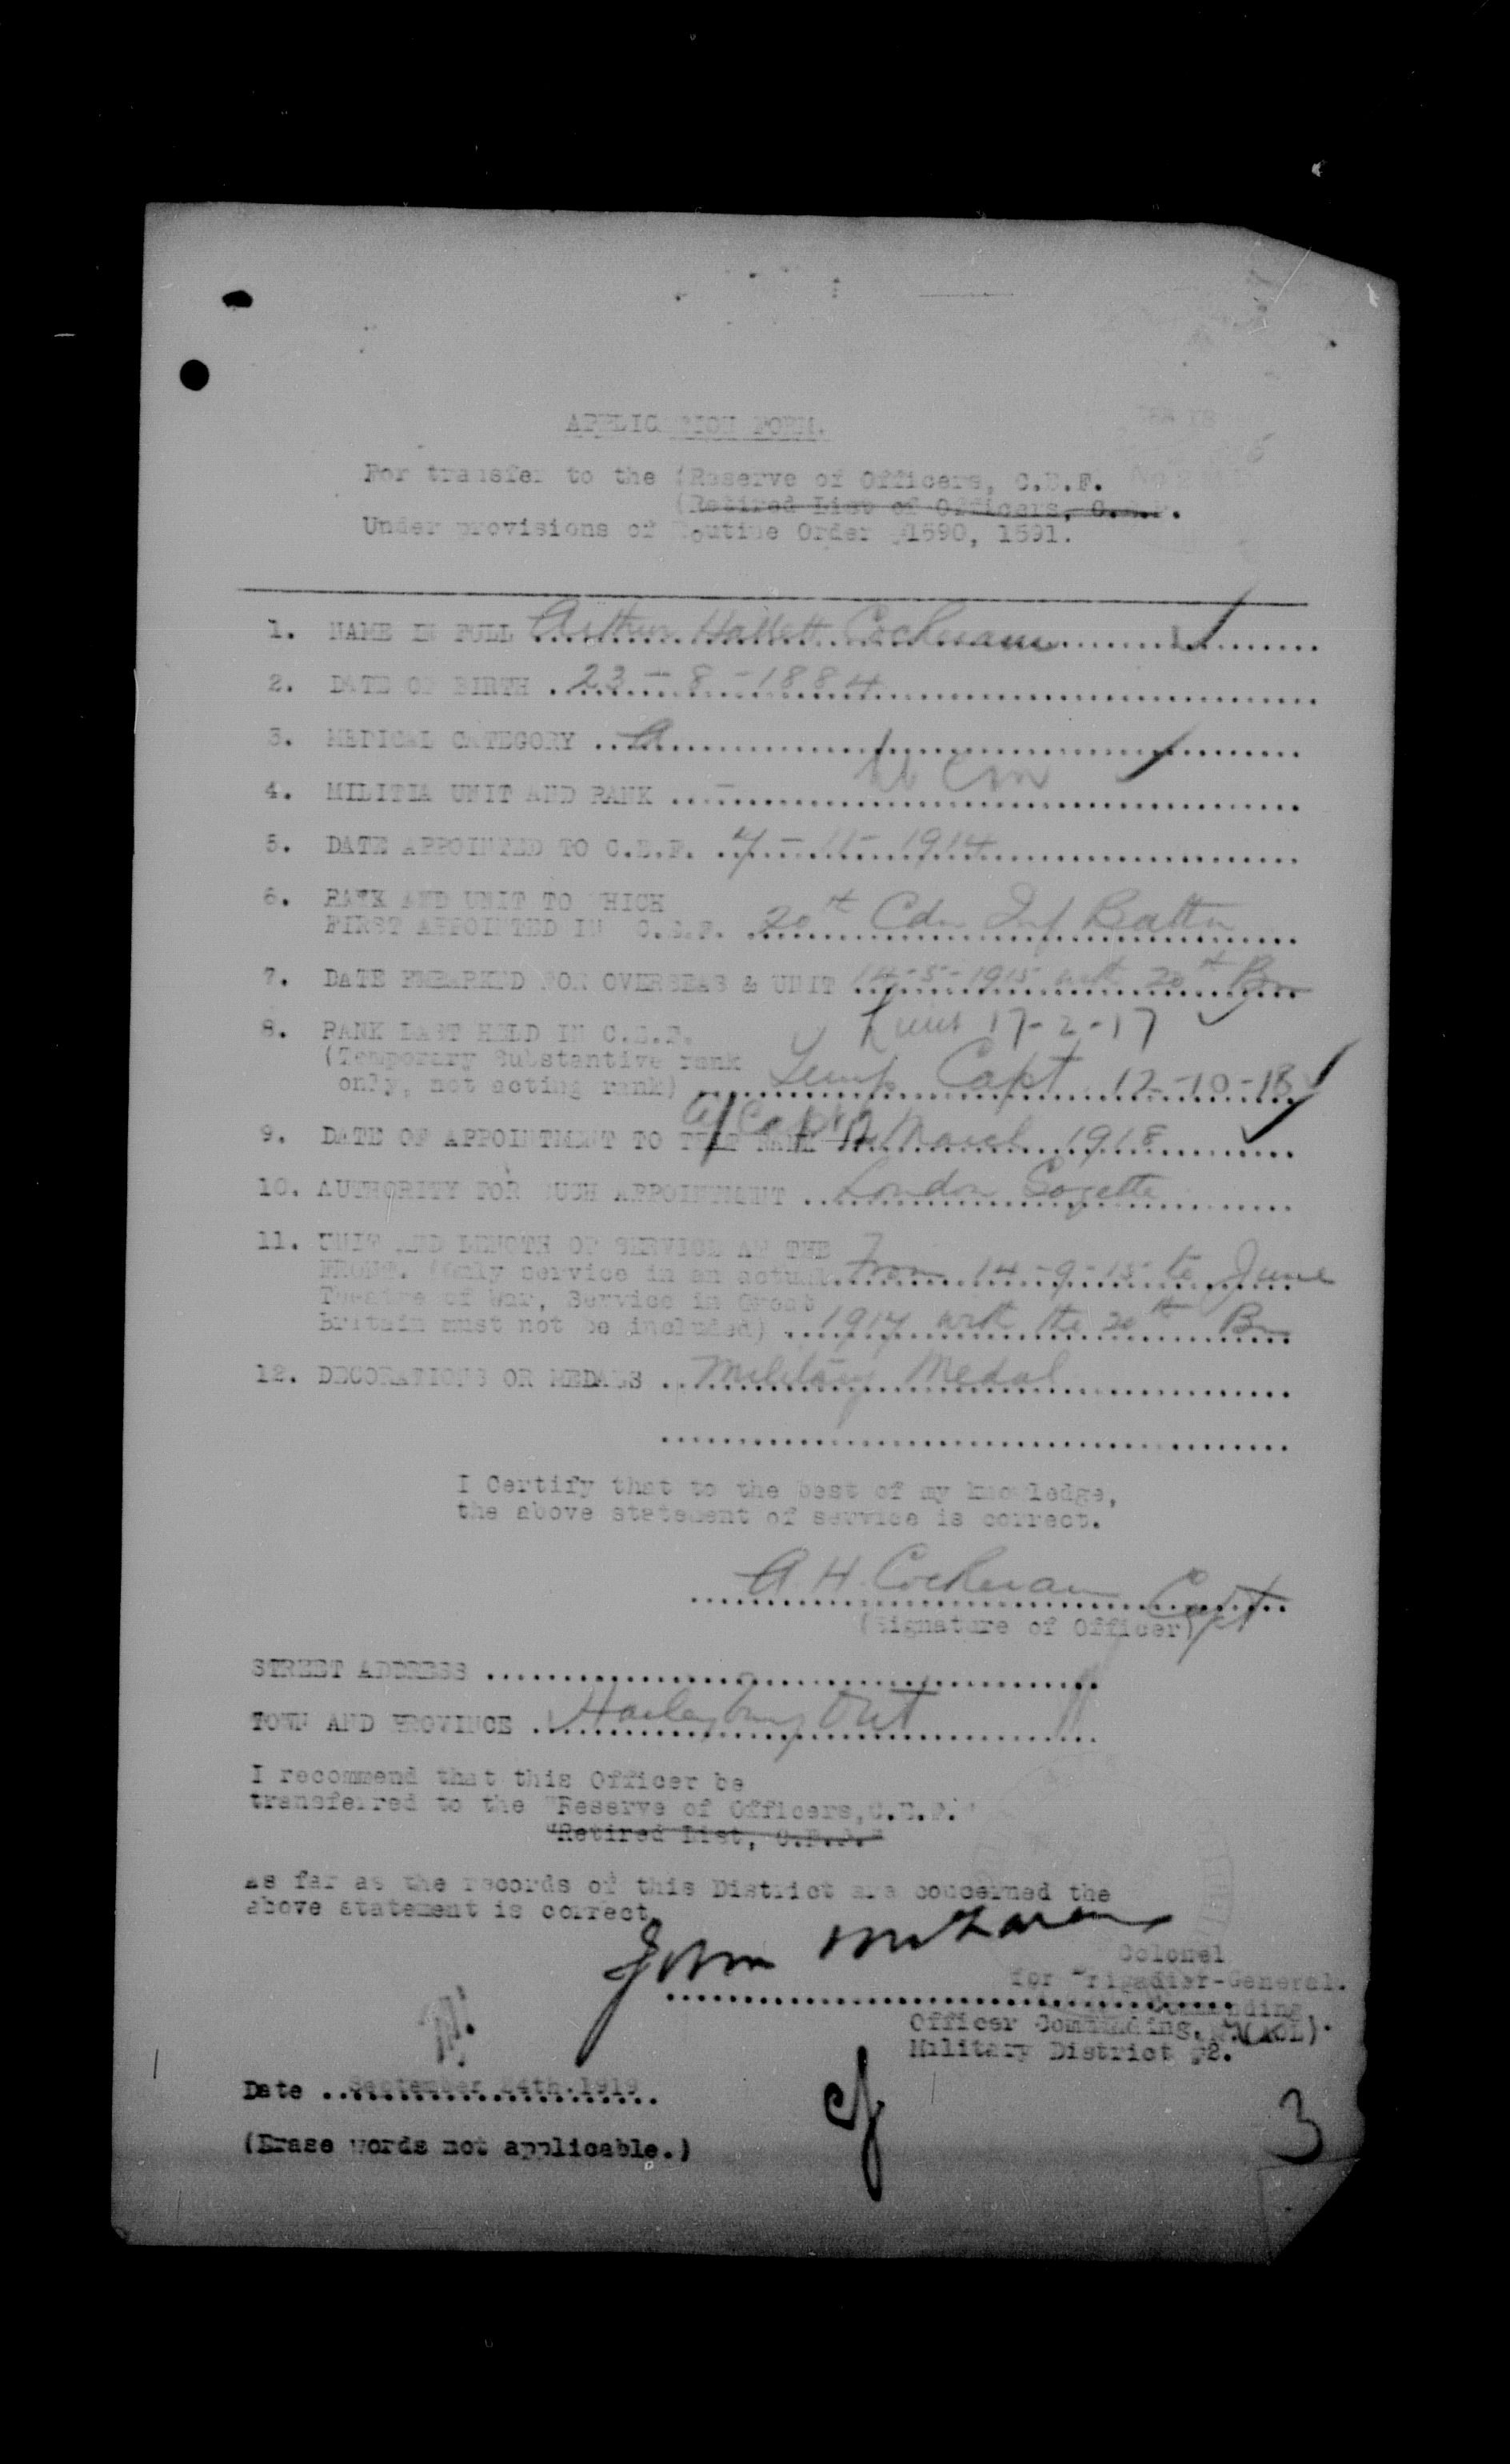 APPLICATION FORM.
For transfer to the (Reserve of Officers, C.E.F.
(Retired List of Officers, C.E.F.
Under provisions of Routine Order #1590, 1591.
1. NAME IN FULL Arthur Hallett Cochrane
2. DATE OF BIRTH 23 - 8 - 1884
3. MEDICAL CATEGORY A
4. MILITIA UNIT AND RANK —
5. DATE APPOINTED TO C.E.F. 7 - 11 - 1914
6. RANK AND UNIT TO WHICH
FIRST APPOINTED IN C.E.F. 20th Cdn Inf Battn
7. DATE EMBARKED FOR OVERSEAS & UNIT 14-5-1915 with 20th Bn
8. RANK LAST HELD IN C.E.F. Lieut 17-2-17
(Temporary Substantive rank
only, not acting rank) Temp Capt 12-10-18
9. DATE OF APPOINTMENT TO THAT RANK March 1918
10. AUTHORITY FOR SUCH APPOINTMENT London Gazette
11. UNIT AND LENGTH OF SERVICE AT THE
FRONT. (Only service in an actual From 14-9-15 to June
Theatre of War, Service in Great
Britain must not be included) 1917 with the 20th Bn
12. DECORATIONS OR MEDALS Military Medal
I Certify that to the best of my knowledge,
the above statement of service is correct.
A H Cochrane Capt
(Signature of Officer)
STREET ADDRESS
TOWN AND PROVINCE Haileybury Ont
I recommend that this Officer be
transferred to the "Reserve of Officers, C.E.F."
"Retired List, C.E.F."
As far as the records of this District are concerned the
above statement is correct.
Colonel
for Brigadier-General.
Commanding
Officer Commanding,
Military District #2.
Date September 24th 1919
(Erase words not applicable.)
3